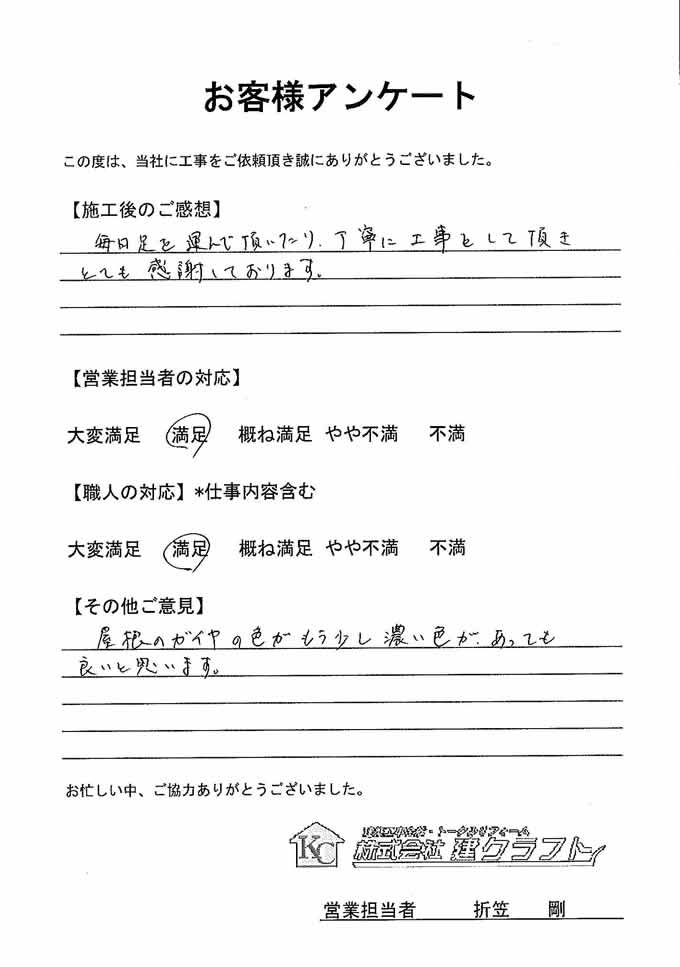 お客様アンケート
この度は、当社に工事をご依頼頂き誠にありがとうございました。
【施工後のご感想】
毎日足を運んで頂いたり、丁寧に工事をして頂き
とても感謝しております。
【営業担当者の対応】
大変満足 満足 概ね満足 やや不満 不満
【職人の対応】*仕事内容含む
大変満足 満足 概ね満足 やや不満 不満
【その他ご意見】
屋根のガイヤの色がもう少し濃い色が、あっても
良いと思います。
お忙しい中、ご協力ありがとうございました。
KC
株式会社 建クラフト
営業担当者 折笠 剛